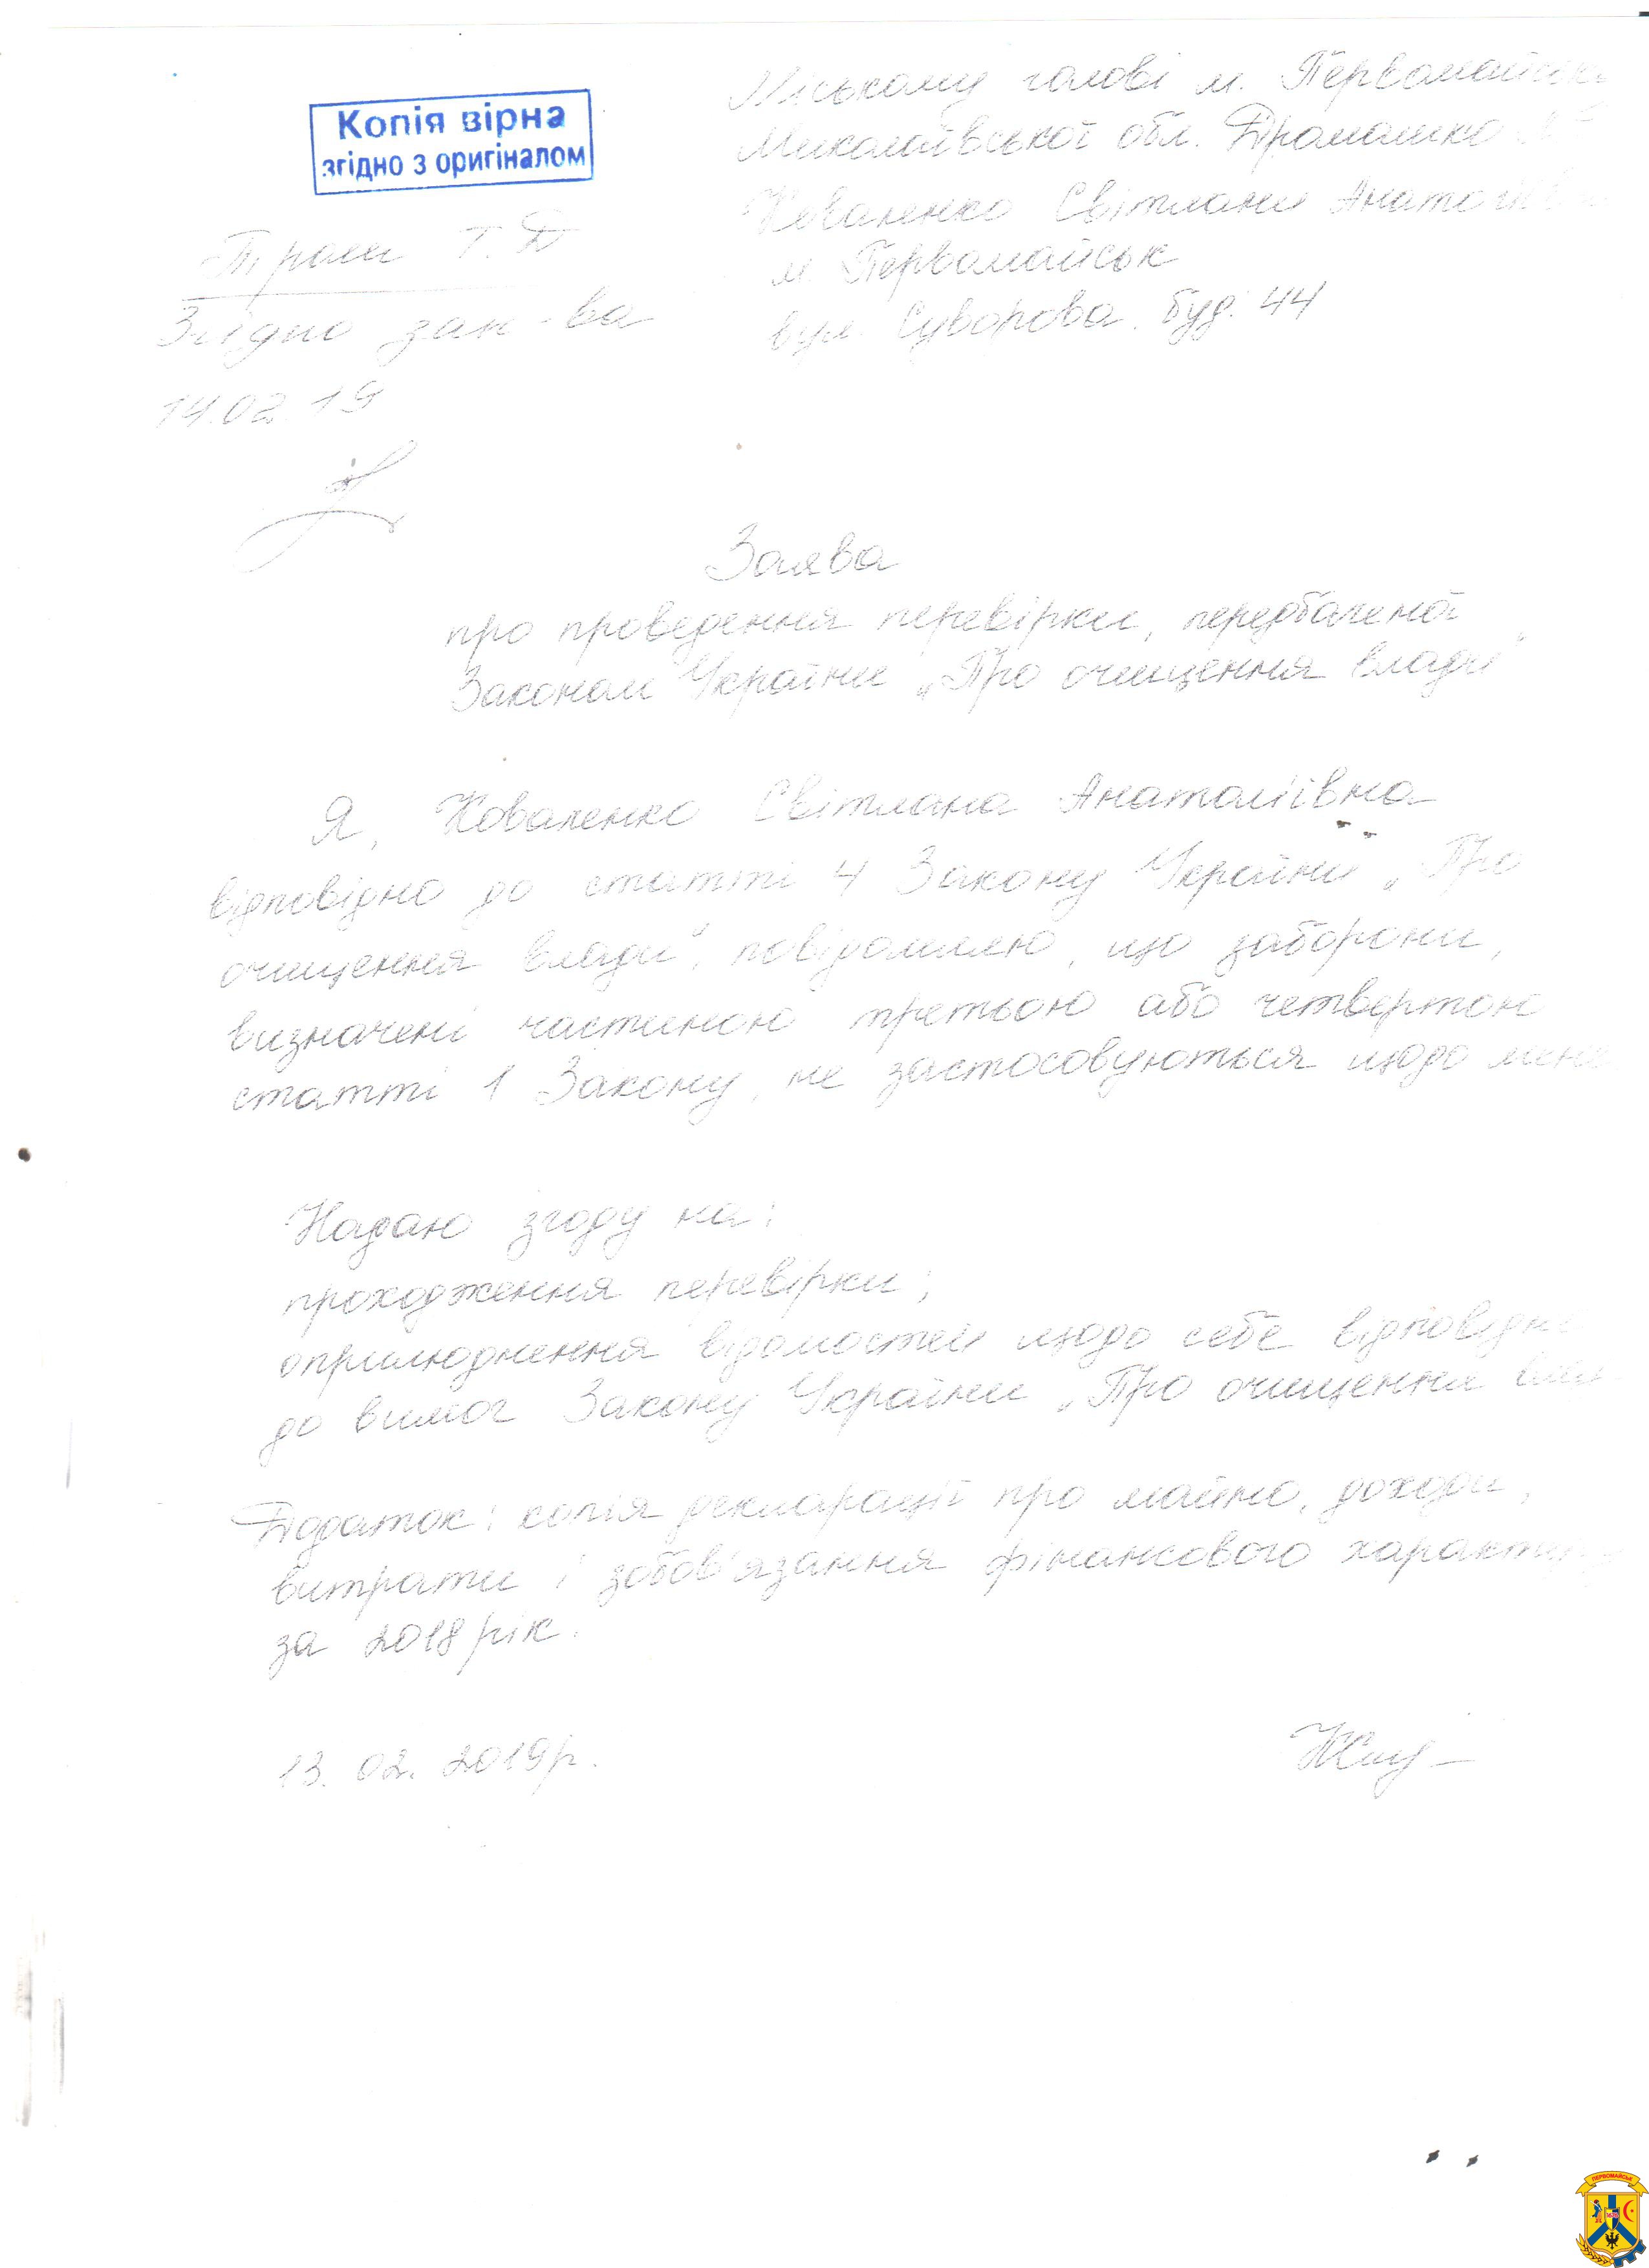 Копія вірна
згідно з оригіналом
Міському голові м. Первомайська
Миколаївської обл. Дромашко
Коваленко Світлани Анатоліївни
м. Первомайськ
вул. Суворова, буд. 44
Т. Д
Згідно зак-ва
14.02.19
Заява
про проведення перевірки, передбаченої
Законом України „Про очищення влади"
Я, Коваленко Світлана Анатоліївна
відповідно до статті 4 Закону України „Про
очищення влади", повідомляю, що заборони,
визначені частиною третьою або четвертою
статті 1 Закону, не застосовуються щодо мене
Надаю згоду на:
проходження перевірки;
оприлюднення відомостей щодо себе відповідно
до вимог Закону України „Про очищення
Додаток: копія декларації про майно, доходи,
витрати і зобов'язання фінансового характеру
за 2018 рік.
13.02.2019р.
ПЕРВОМАЙСЬК
1676